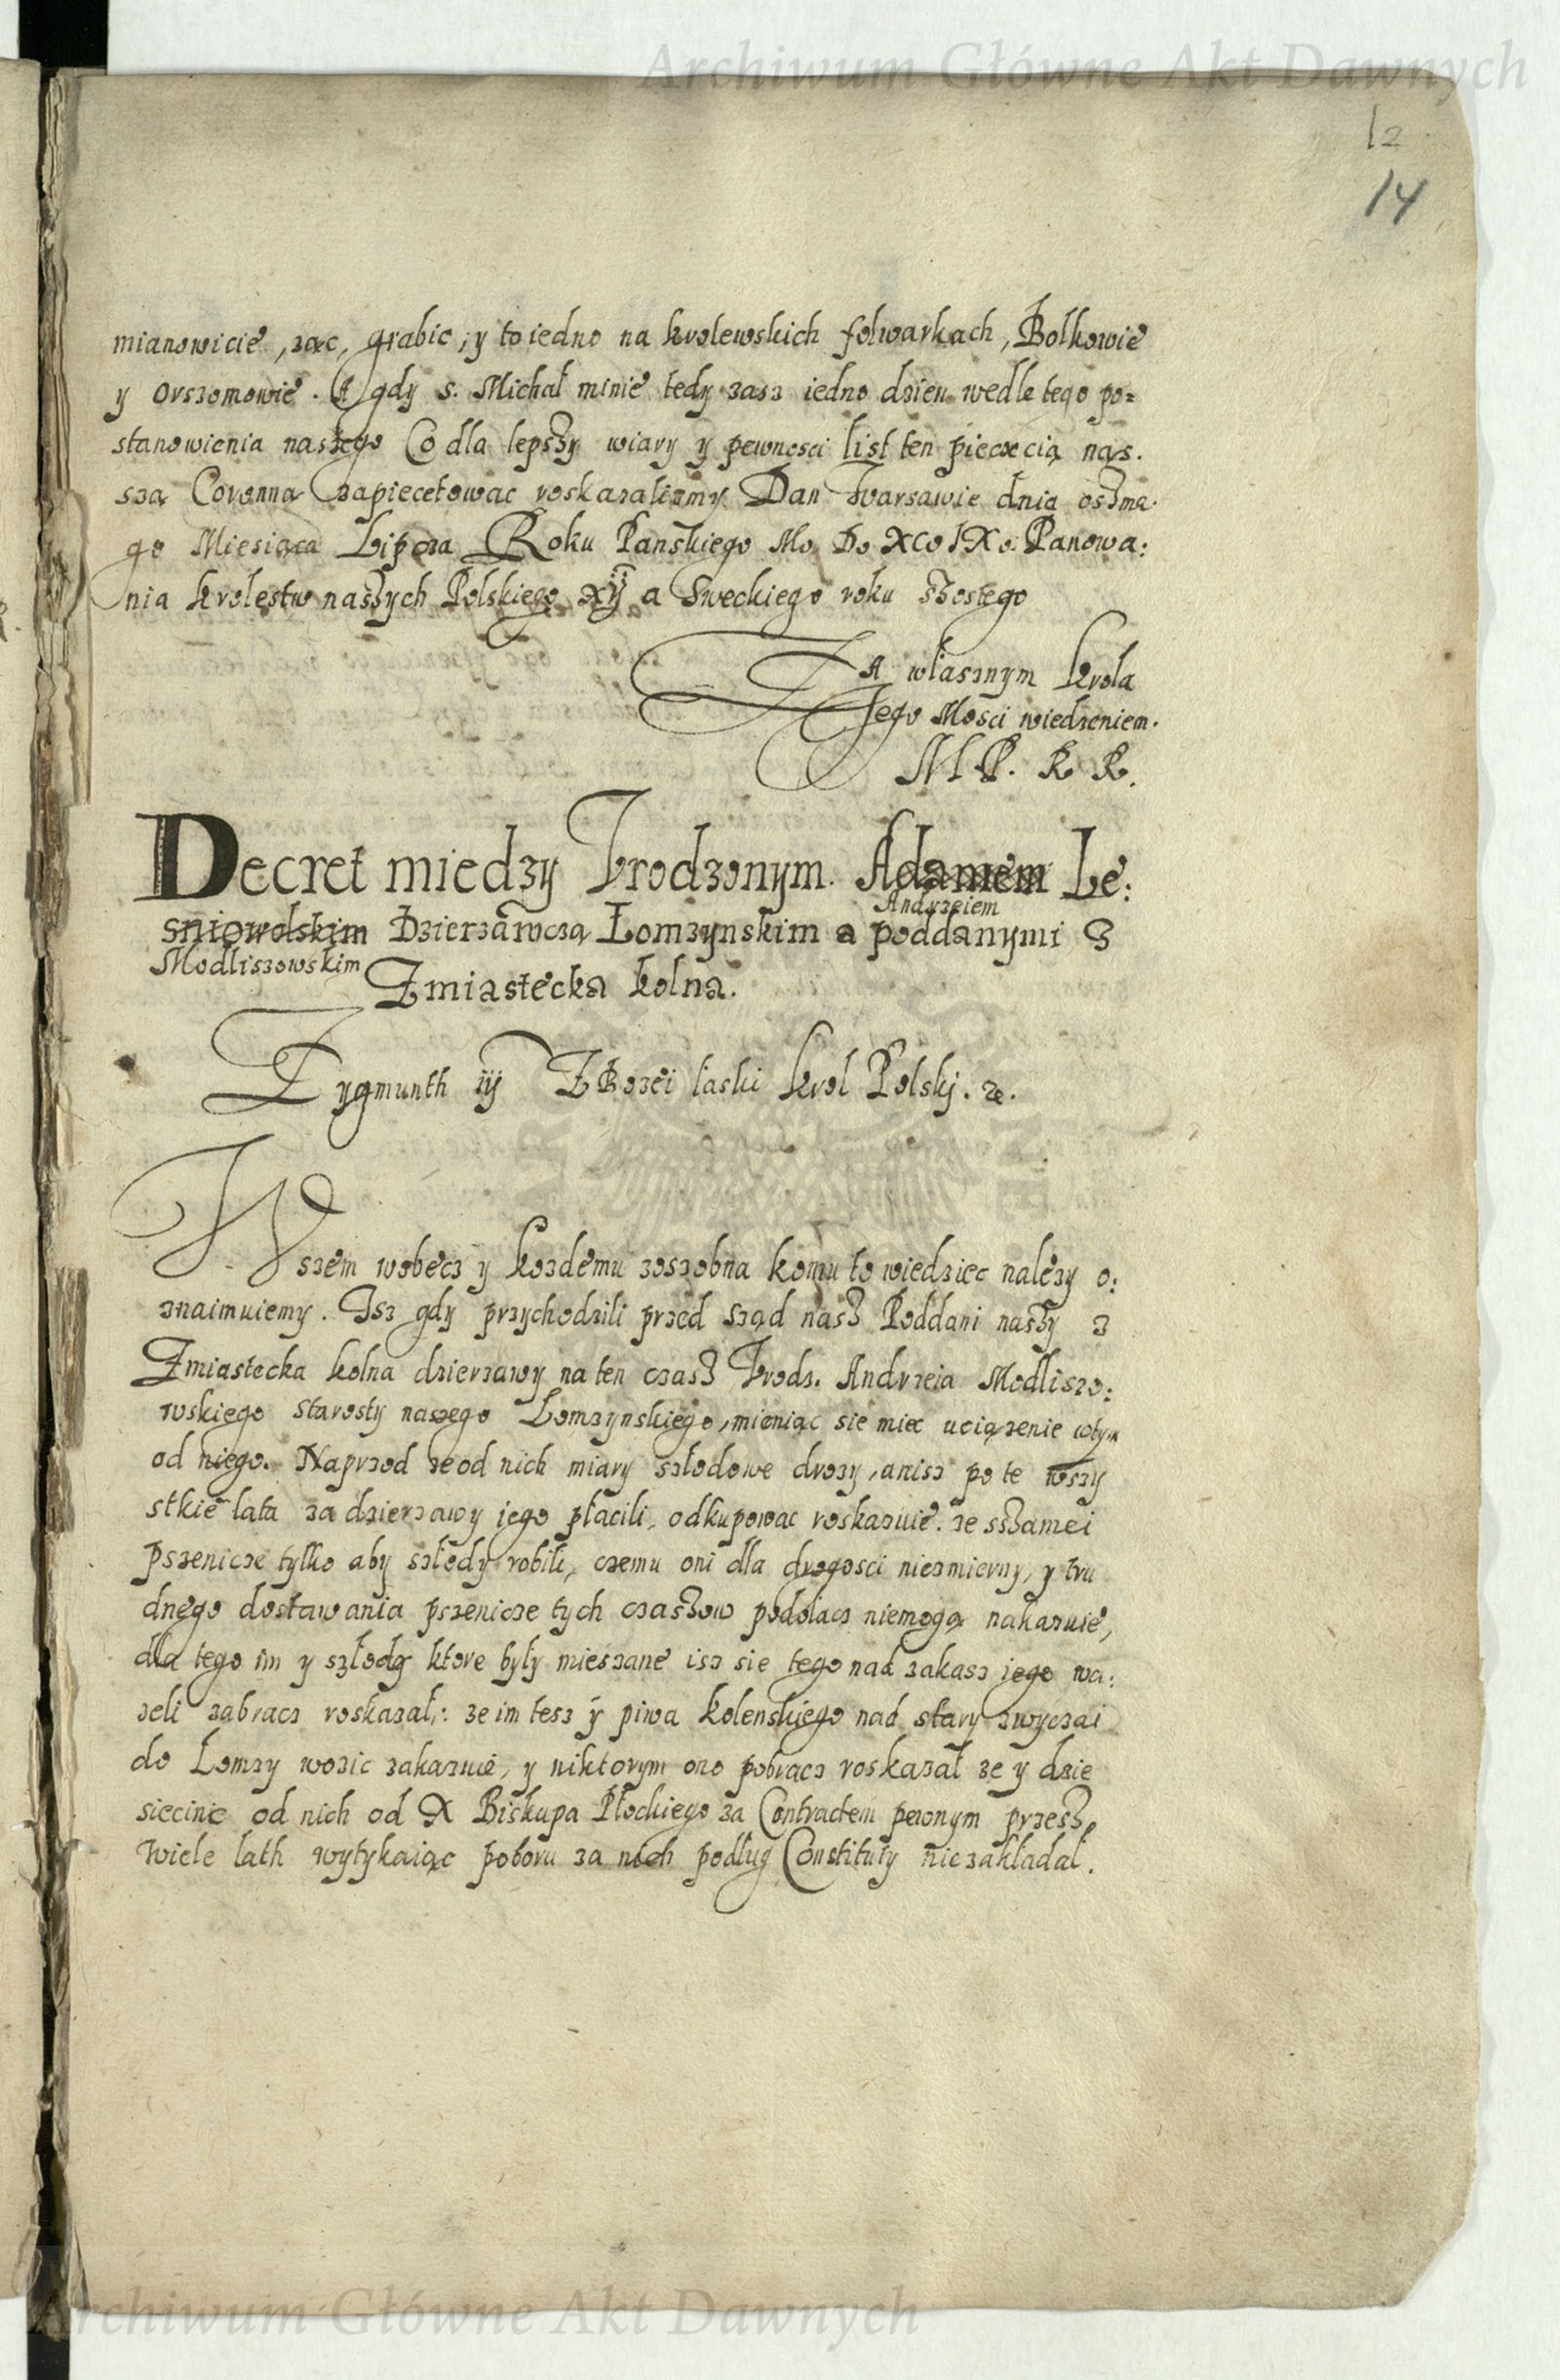 Archiwum Główne Akt Dawnych
12
14
mianowicie, ząc, grabic, y to iedno na krolewskich folwarkach, Bolkowie
y Orszomowie. A gdy s. Michał minie tedy zasz iedno dzien wedle tego po=
stanowienia naszego Co dla lepszy wiary y pewnosci list ten pieczecią nas.
sza Coronna zapiecetowac roskazalismy Dan Warsawie dnia oszma.
go Miesiąca Lipcza Roku Panskiego Mo Do XCoIXo. Panowa:
nia krolestw naszych Polskiego xij a Sweckiego roku szostego
Za własznym krola
Jego Mosci wiedzeniem.
M P. K K.
Decret miedzy Vrodzonym. Adamem Le:
Andrzeiem
sniowolskim Dzierzawczą Łomzynskim a poddanymi z
Modliszowskim
Zmiastecka kolna.
Zygmunth iij Z Bozei łaski krol Polskj. &.
Wszem wobecz y kozdemu zoszobna komu to wiedziec nalezy o:
znaimuiemy. Isz gdy przychodzili przed sząd nasz Poddani naszy z
Zmiastecka kolna dzierzawy na ten czasz Vrodz. Andrzeia Modliszo:
wskiego Starosty naszego Lomzynskiego, mieniąc sie miec uciązenie wtym
od niego. Naprzod ze od nich miary szłodowe drozy, anisz po te wszy
stkie lata za dzierzawy jego płacili, odkupowac roskazuie. ze sszamei
pszenicze tylko aby szłody robili, czemu oni dla drogosci niezmierny, y tru
dnego dostawania pszenicze tych czaszow podolacz niemogą nakazuie,
dla tego im y szłody ktore były mieszane isz sie tego nad zakasz jego wa:
zeli zabracz roskazał: ze im tesz y piwa kolenskiego nad stary zwyczai
do Lomzy wozic zakazuie, y niktorym ono pobracz roskazał ze y dzie
siecine od nich od X Biskupa Płockiego za Contractem pewnym przesz
wiele lath wytykaiąc poboru za nich podług Constituty nie zakładał.
Archiwum Główne Akt Dawnych